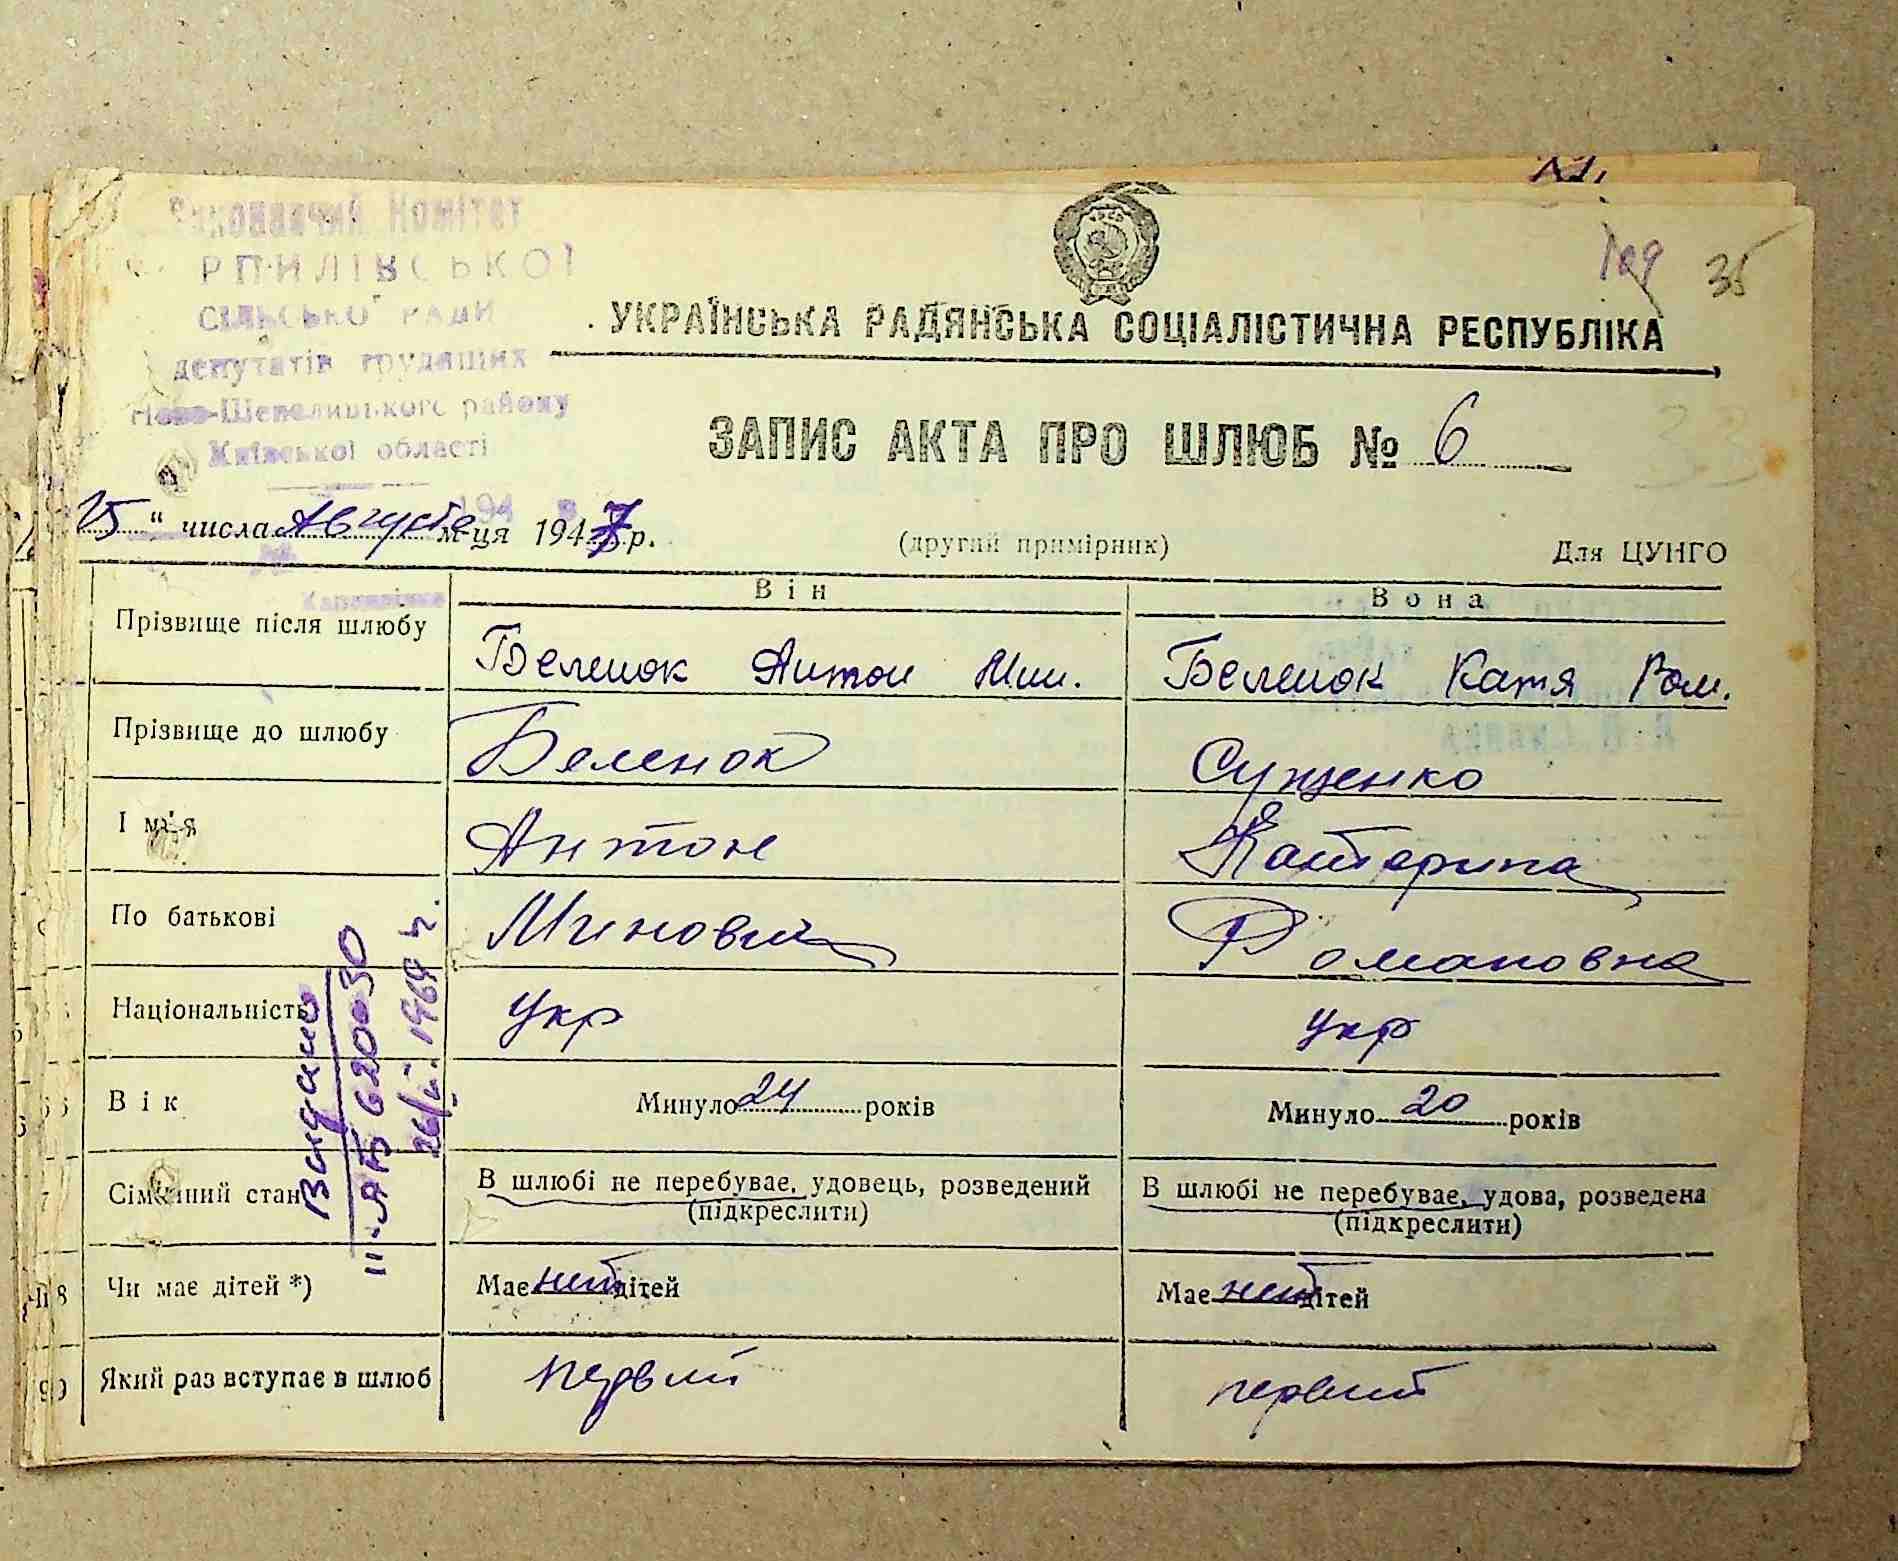 Виконавчий Комітет
РПИЛІВСЬКОЇ
СІЛЬСЬКОЇ РАДИ
депутатів трудящих
Ново-Шепелицького району
Київської області
35
УКРАЇНСЬКА РАДЯНСЬКА СОЦІАЛІСТИЧНА РЕСПУБЛІКА
ЗАПИС АКТА ПРО ШЛЮБ № 6
33
25 " числа Августа м-ця 1947 р.
(другий примірник)
Для ЦУНГО
Він
Вона
Прізвище після шлюбу
Беленок Антон Мин.
Беленок Катя Ром.
Прізвище до шлюбу
Беленок
Сущенко
Ім'я
Антон
Катерина
По батькові
Минович
Романовна
Національність
укр
укр
Вік
Минуло 24 років
Минуло 20 років
Сімейний стан
В шлюбі не перебуває, удовець, розведений
(підкреслити)
В шлюбі не перебуває, удова, розведена
(підкреслити)
Чи має дітей *)
Має нет дітей
Має нет дітей
Який раз вступає в шлюб
первий
первий
Видано
II-АБ 620030